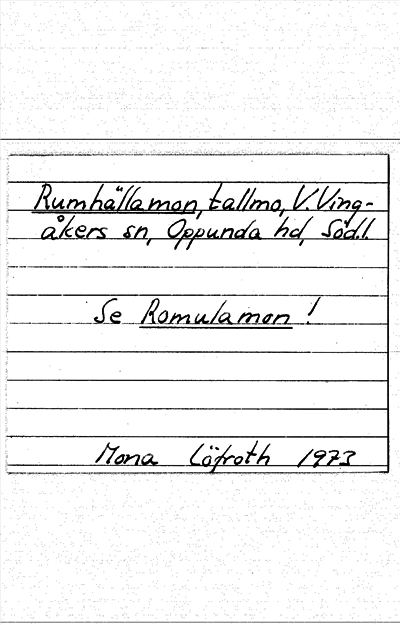 Rumhällamon, tallmo, V. Ving-
åkers sn, Oppunda hd, Södl.
Se Romulamon !
Mona Löfroth 1973